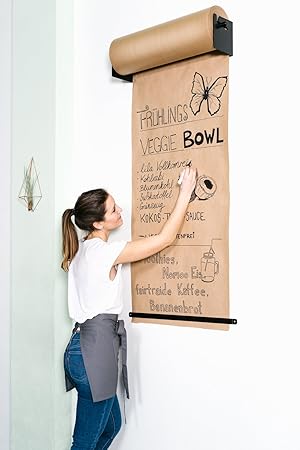 FRÜHLINGS
VEGGIE BOWL
Lila Vollkornreis
Kohlrabi
Blumenkohl
Süßkartoffel
Grünzeug
KOKOS- SAUCE
Smoothies,
Nomoo Eis
fairtrade Kaffee,
Bananenbrot